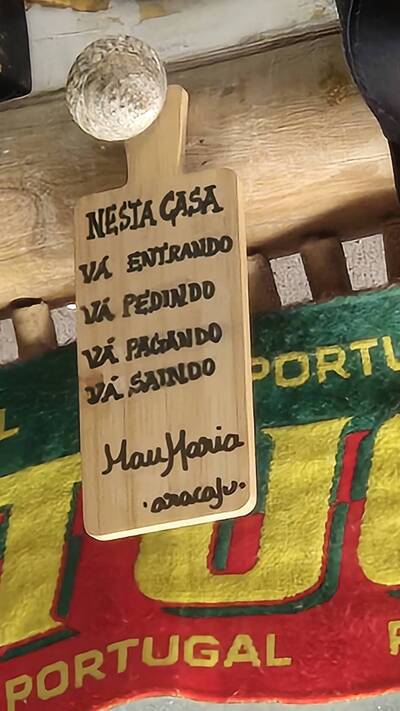 NESTA CASA
VÁ ENTRANDO
VÁ PEDINDO
VÁ PAGANDO
VÁ SAINDO
MauMaria
·aracaju·
PORTU
PORTUGAL